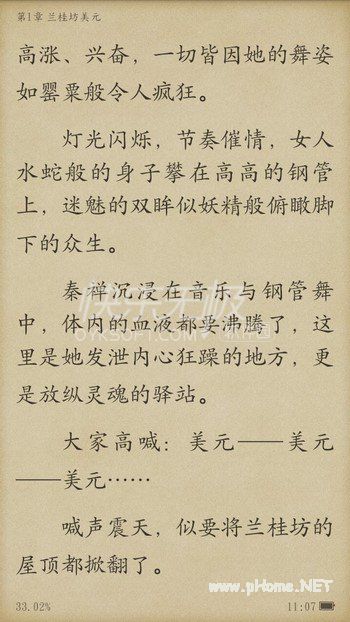 第1章 兰桂坊美元
高涨、兴奋，一切皆因她的舞姿
如罂粟般令人疯狂。
灯光闪烁，节奏催情，女人
水蛇般的身子攀在高高的钢管
上，迷魅的双眸似妖精般俯瞰脚
下的众生。
秦禅沉浸在音乐与钢管舞
中，体内的血液都要沸腾了，这
里是她发泄内心狂躁的地方，更
是放纵灵魂的驿站。
大家高喊：美元——美元
——美元……
喊声震天，似要将兰桂坊的
屋顶都掀翻了。
www.pHome.NET
33.02%
11:07